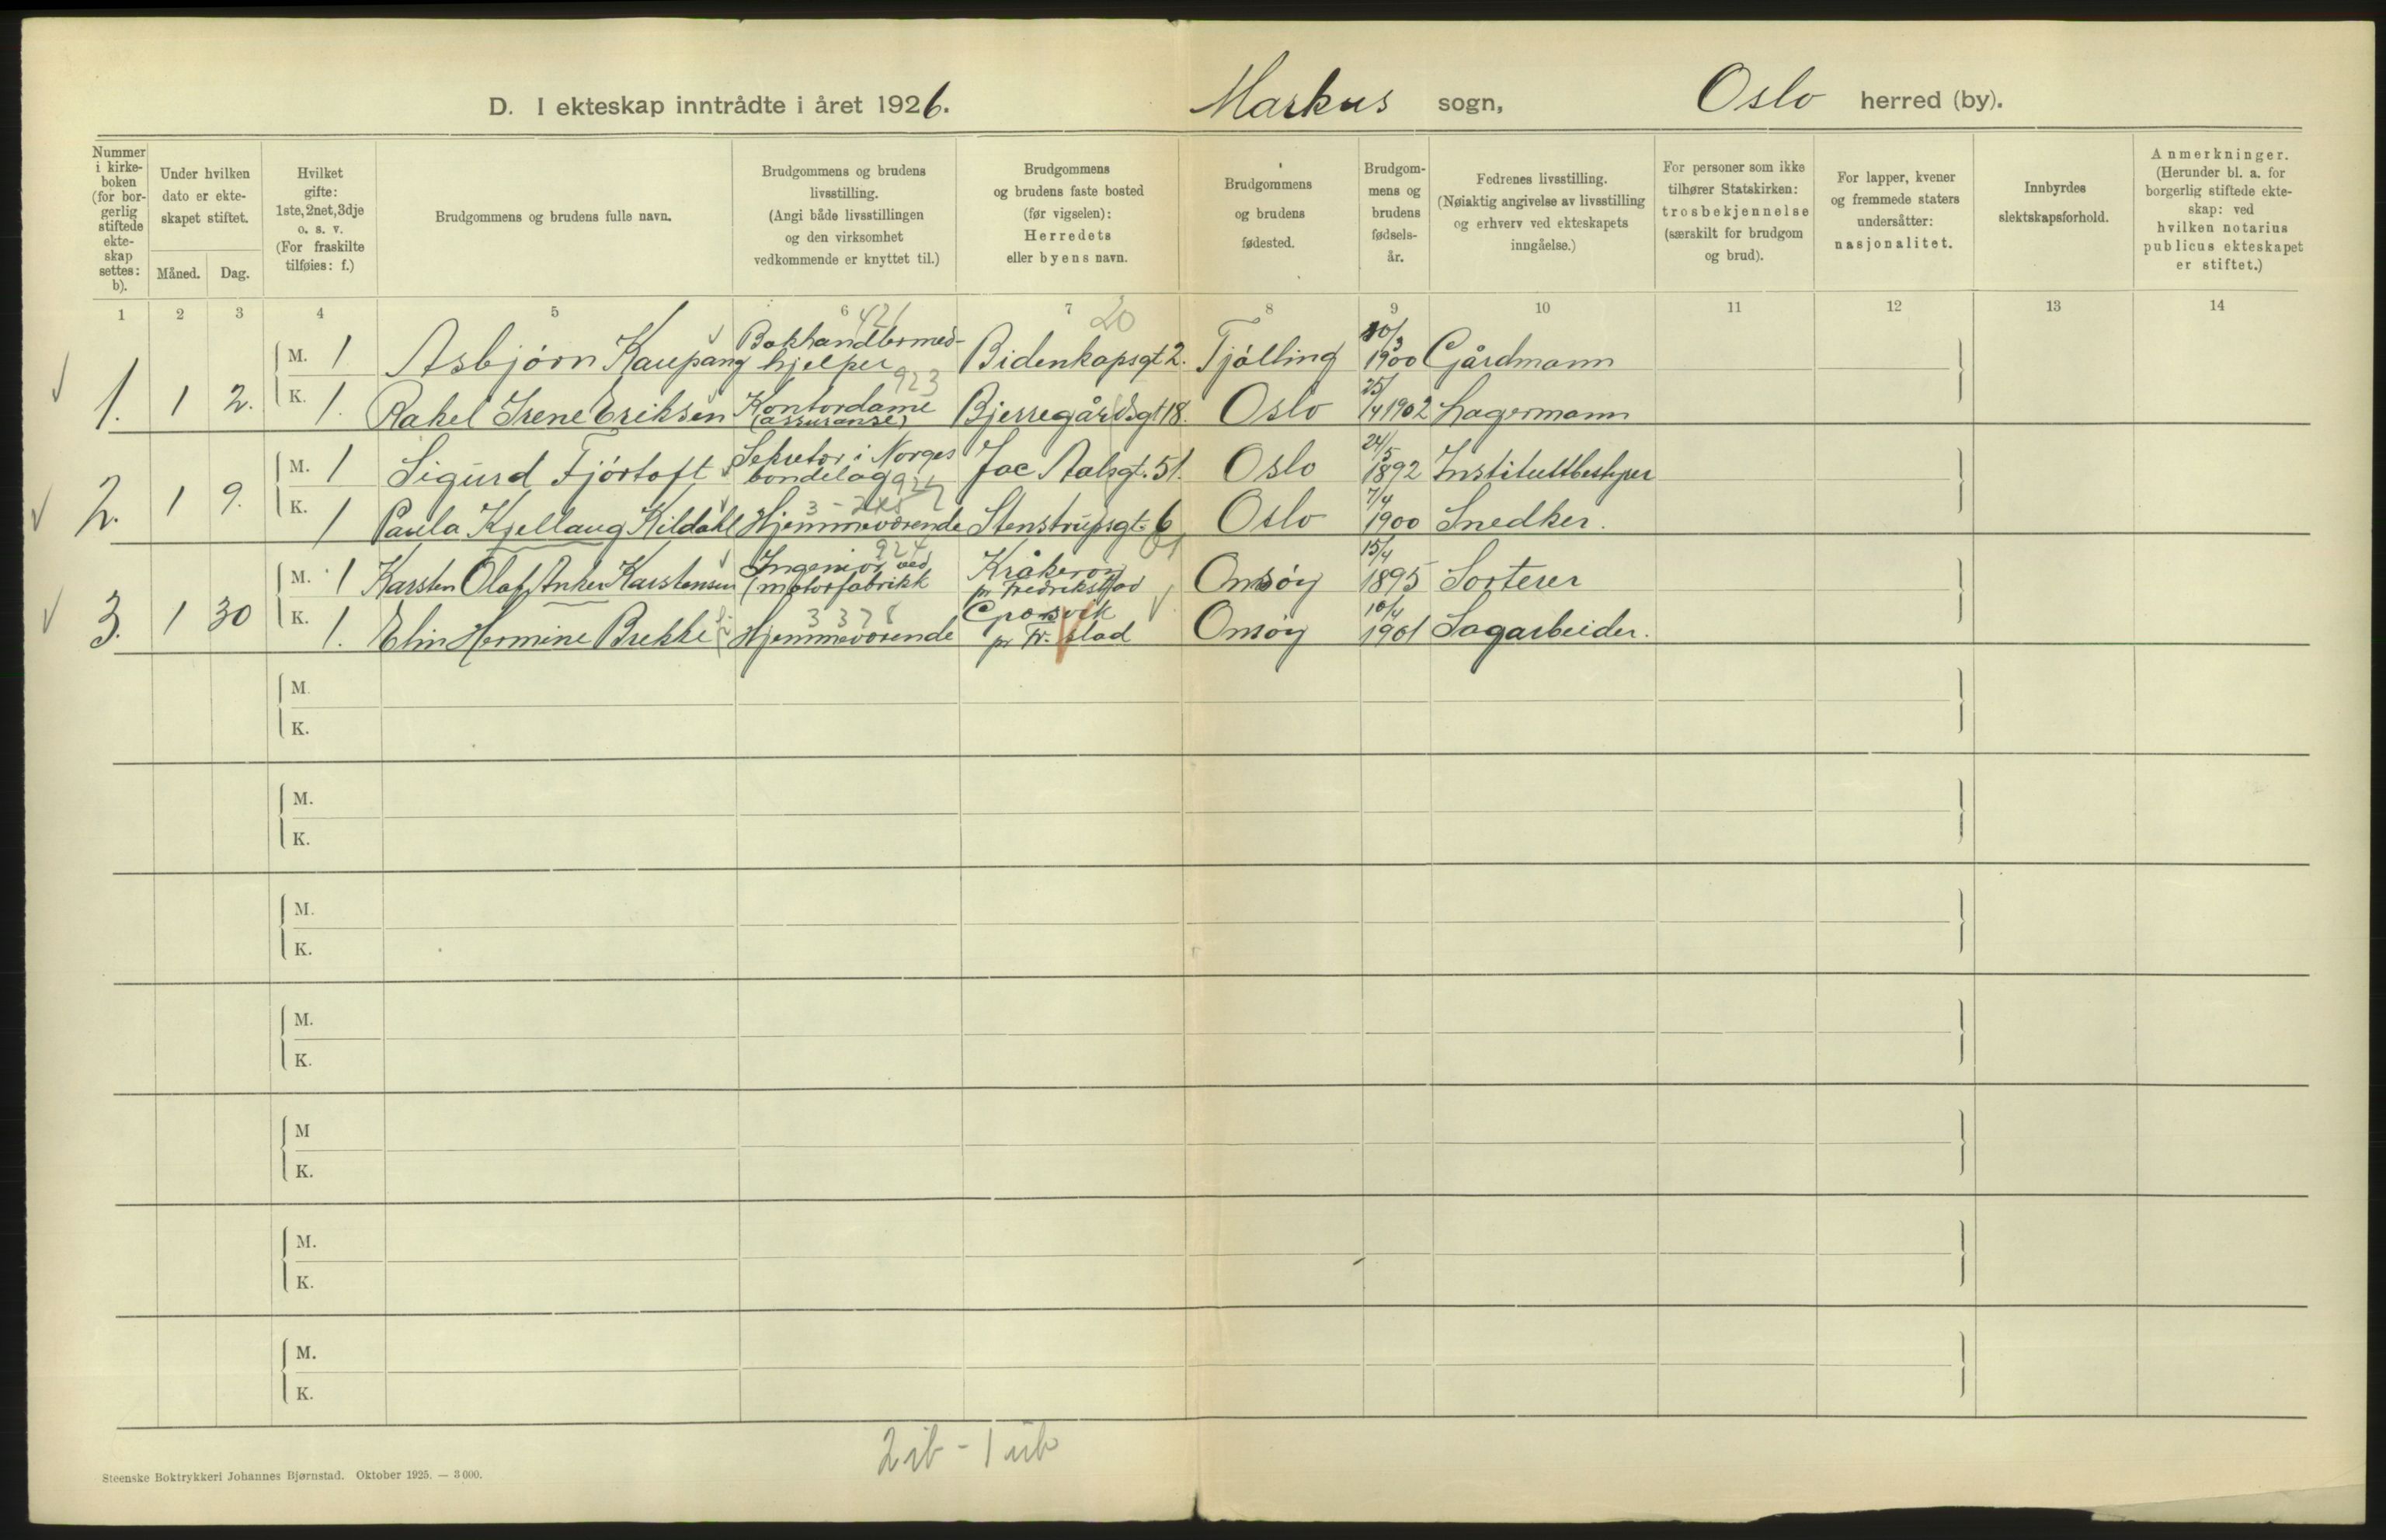 D. I ekteskap inntrådte i året 1926.
Markus sogn,
Oslo herred (by).
Nummer
i kirke-
boken
(for bor-
gerlig
stiftede
ekte-
skap
settes:
b).
Under hvilken
dato er ekte-
skapet stiftet.
Måned. Dag.
Hvilket
gifte:
1ste, 2net, 3dje
o. s. v.
(For fraskilte
tilføies: f.)
Brudgommens og brudens fulle navn.
Brudgommens og brudens
livsstilling.
(Angi både livsstillingen
og den virksomhet
vedkommende er knyttet til.)
Brudgommens
og brudens faste bosted
(før vigselen):
Herredets
eller byens navn.
Brudgommens
og brudens
fødested.
Brudgom-
mens og
brudens
fødsels-
år.
Fedrenes livsstilling.
(Nøiaktig angivelse av livsstilling
og erhverv ved ekteskapets
inngåelse.)
For personer som ikke
tilhører Statskirken:
trosbekjennelse
(særskilt for brudgom
og brud).
For lapper, kvener
og fremmede staters
undersåtter:
nasjonalitet.
Innbyrdes
slektskapsforhold.
Anmerkninger.
(Herunder bl. a. for
borgerlig stiftede ekte-
skap: ved
hvilken notarius
publicus ekteskapet
er stiftet.)
1 2 3 4 5 6 7 8 9 10 11 12 13 14
421 20
1. 1 2.
M. 1 Asbjørn Kaupang Bokhandlermed-
hjelper Bidenkapsgt 2. Tjølling 10/3
1900 Gårdmann
923
K. 1. Rakel Irene Eriksen Kontordame
(assuranse) Bjerregårdsgt 18. Oslo 25/
/4 1902 Lagermann
2. 1 9.
M. 1 Sigurd Fjørtoft Sekretær i Norges
bondelag Jac Aalsgt. 51. Oslo 24/5
1892 Instituttbestyrer
K. 1 Paula Kjellaug Kildahl Hjemmeværende Stenstrupsgt. 6 Oslo 7/4
1900 Snedker.
924
3. 1 30
M. 1 Karsten Olaf Anker Karstensen Ingeniør ved
(motorfabrikk Kråkerøy
pr Fredrikstad Onsøy 15/4
1895 Sorterer
3378
K. 1. Elin Hermine Brekke Hjemmeværende Gressvik
pr Fr. stad Onsøy 10/4
1901 Sagarbeider.
M.
K.
M.
K.
M.
K.
M.
K.
M
K.
M.
K.
M.
K.
2 ib - 1 ub
Steenske Boktrykkeri Johannes Bjørnstad. Oktober 1925. — 3000.